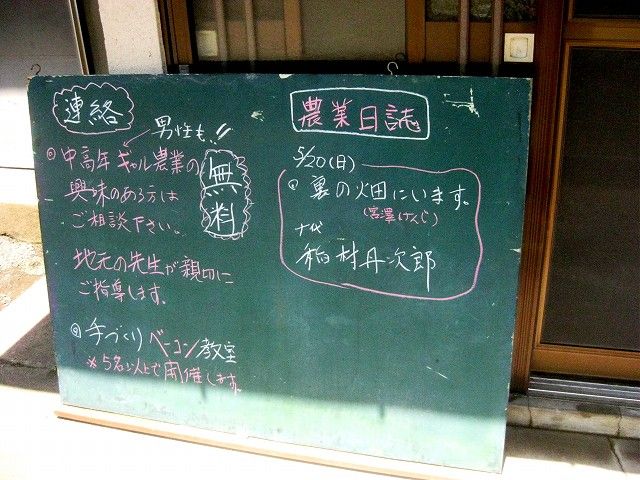 連絡
男性も!!
◎中高年ギャル農業の
興味のある方は
ご相談下さい。
無料
地元の先生が親切に
ご指導します。
◎手づくりベーコン教室
※5名以上で開催します。
農業日誌
5/20(日)
◎裏の畑にいます。
(宮澤けんじ)
十代
稲村丹次郎